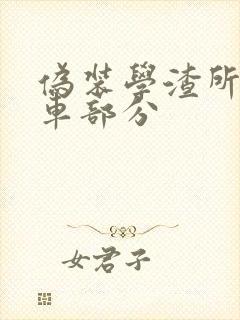 偽裝學渣所
車部分
女君子